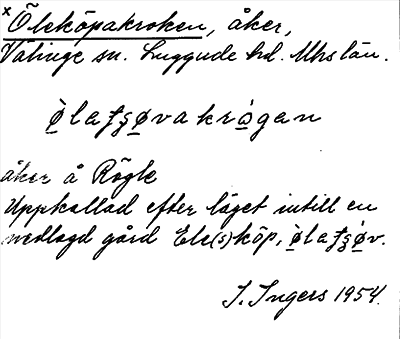 x Öleköpakroken, åker,
Välinge sn. Luggude hd. Mhs län.
ø̀laʈʂøvakrǿgan
åker å Rögle
Uppkallad efter läget intill en
nedlagd gård Ele(s)köp, ø̀laʈʂøv.
I. Ingers 1954.